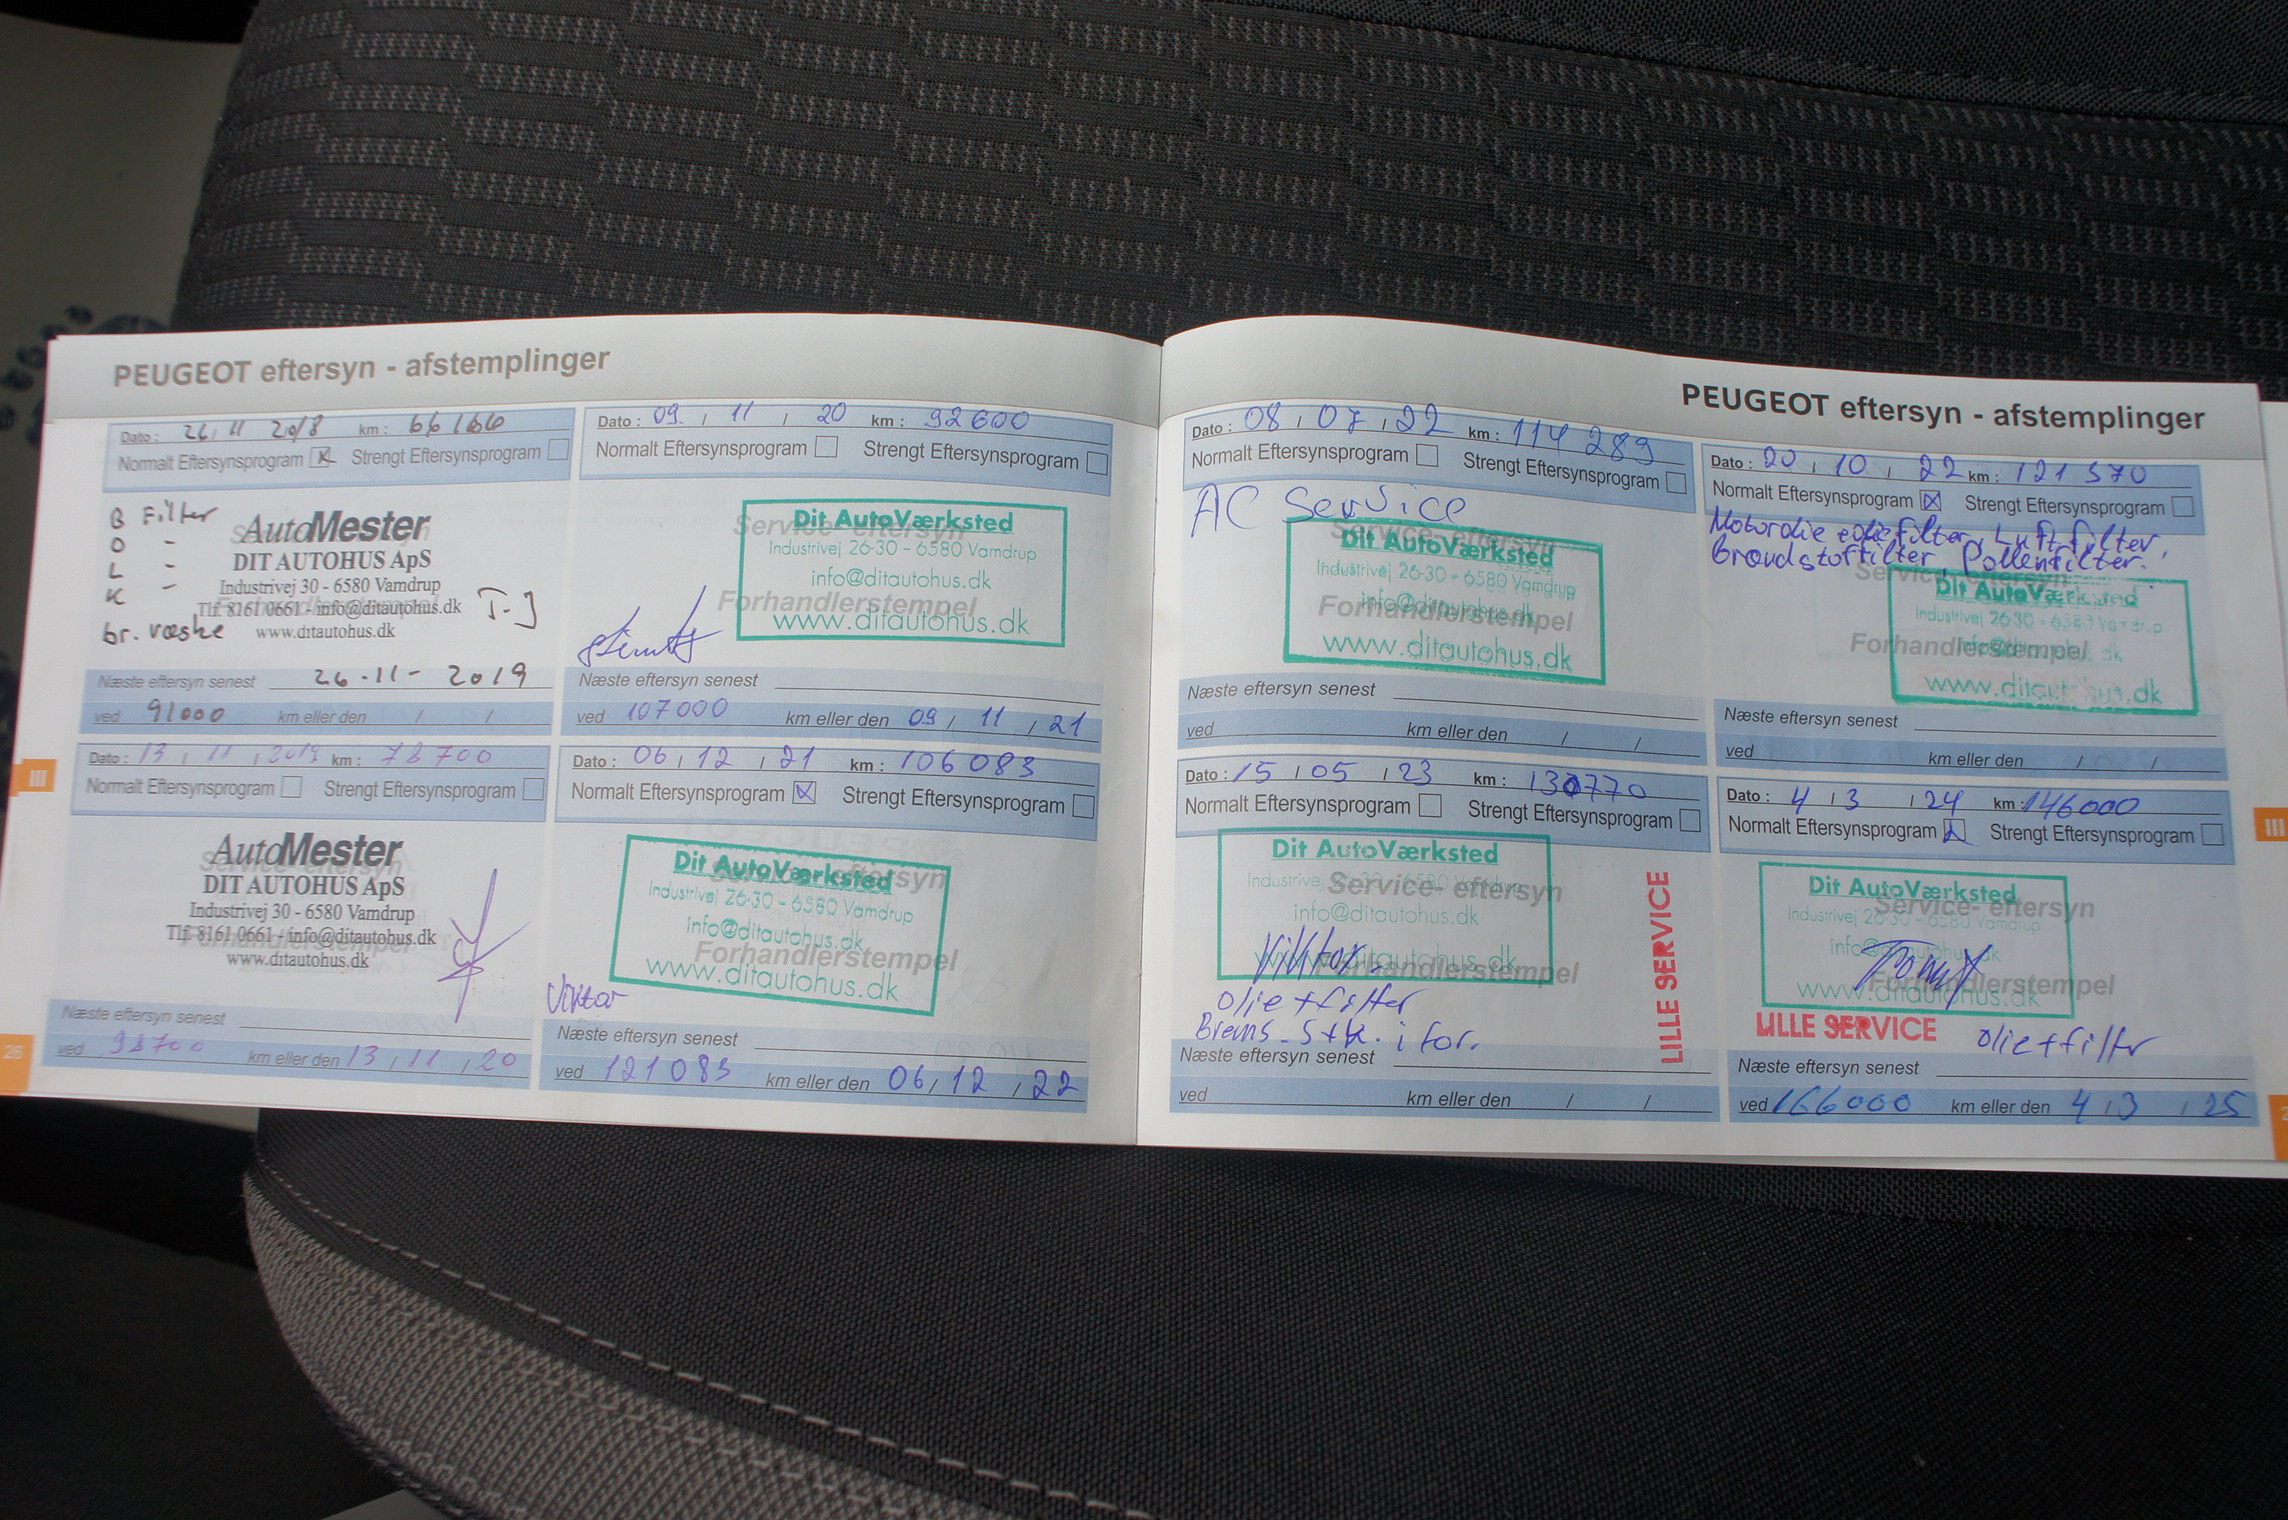 PEUGEOT eftersyn - afstemplinger
Dato : 26 11 2018 km : 66166
Normalt Eftersynsprogram Strengt Eftersynsprogram
B Filter
O -
L -
K -
br. væske
AutoMester
DIT AUTOHUS ApS
Industrivej 30 - 6580 Vamdrup
Tlf. 8161 0661 - info@ditautohus.dk
www.ditautohus.dk
T-J
Næste eftersyn senest 26-11-2019
ved 91000 km eller den / /
Dato : 13 / 11 / 2019 km : 78700
Normalt Eftersynsprogram Strengt Eftersynsprogram
AutoMester
DIT AUTOHUS ApS
Industrivej 30 - 6580 Vamdrup
Tlf. 8161 0661 - info@ditautohus.dk
www.ditautohus.dk
Næste eftersyn senest
ved 93700 km eller den 13 / 11 / 20
III
26
Dato : 09. / 11 / 20 km : 92600
Normalt Eftersynsprogram Strengt Eftersynsprogram
Service- eftersyn
Forhandlerstempel
Dit AutoVærksted
Industrivej 26-30 - 6580 Vamdrup
info@ditautohus.dk
www.ditautohus.dk
Næste eftersyn senest
ved 107000 km eller den 09 / 11 / 21
Dato : 06 / 12 / 21 km : 106083
Normalt Eftersynsprogram Strengt Eftersynsprogram
Dit AutoVærksted
Industrivej 26-30 - 6580 Vamdrup
info@ditautohus.dk
Forhandlerstempel
www.ditautohus.dk
Viktor
Næste eftersyn senest
ved 121083 km eller den 06 / 12 / 22
PEUGEOT eftersyn - afstemplinger
Dato : 08 / 07 / 22 km : 114 289
Normalt Eftersynsprogram Strengt Eftersynsprogram
AC Service
Service- eftersyn
Dit AutoVærksted
Industrivej 26-30 - 6580 Vamdrup
info@ditautohus.dk
Forhandlerstempel
www.ditautohus.dk
Næste eftersyn senest
ved km eller den / /
Dato : 15 / 05 / 23 km : 130770
Normalt Eftersynsprogram Strengt Eftersynsprogram
Dit AutoVærksted
Industrivej 26-30 - 6580 Vamdrup
Service- eftersyn
info@ditautohus.dk
www.ditautohus.dk
Forhandlerstempel
Viktor
olie + filter
Brems. stk. i for.
LILLE SERVICE
Næste eftersyn senest
ved km eller den / /
Dato : 20 / 10 / 22 km : 121 570
Normalt Eftersynsprogram Strengt Eftersynsprogram
Motorolie oliefilter, Luftfilter,
Brændstoffilter, Pollenfilter.
Service- eftersyn
Dit AutoVærksted
Industrivej 26-30 - 6580 Vamdrup
Forhandlerstempel
info@ditautohus.dk
www.ditautohus.dk
Næste eftersyn senest
ved km eller den / /
Dato : 4 / 3 / 24 km : 146000
Normalt Eftersynsprogram Strengt Eftersynsprogram
Dit AutoVærksted
Service- eftersyn
Industrivej 26-30 - 6580 Vamdrup
info@ditautohus.dk
Forhandlerstempel
www.ditautohus.dk
LILLE SERVICE olie + filter
Næste eftersyn senest
ved 166000 km eller den 4 / 3 / 25
III